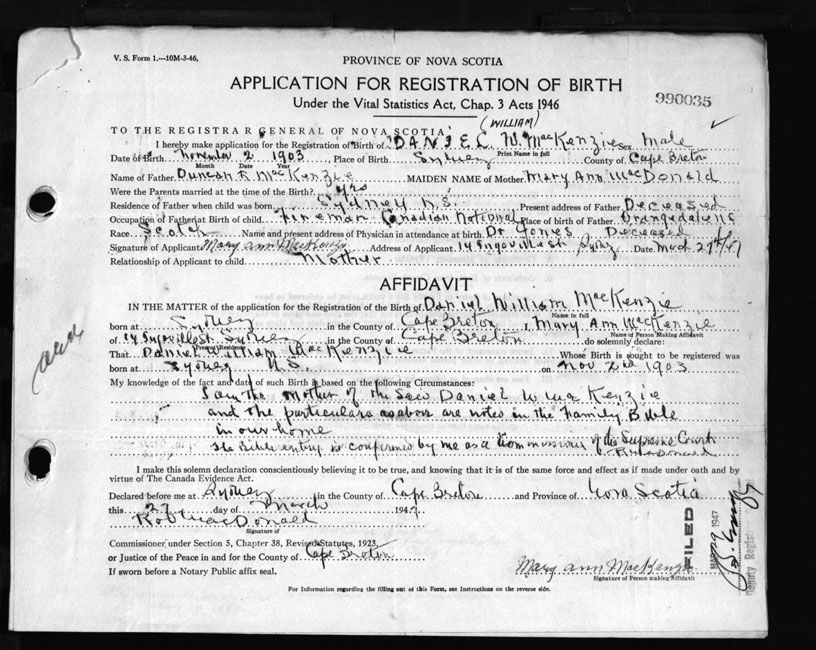 V. S. Form 1.—10M-3-46.
PROVINCE OF NOVA SCOTIA
APPLICATION FOR REGISTRATION OF BIRTH
990035
Under the Vital Statistics Act, Chap. 3 Acts 1946
(WILLIAM)
TO THE REGISTRAR GENERAL OF NOVA SCOTIA
I hereby make application for the Registration of Birth of DANIEL W. MacKenzie Sex Male
Print Name in full
Date of Birth November 2 1903 Place of Birth Sydney County of Cape Breton
Month Date Year
Name of Father Duncan R MacKenzie MAIDEN NAME of Mother Mary Ann MacDonald
Were the Parents married at the time of Birth? yes
Residence of Father when child was born Sydney N.S. Present address of Father Deceased
Occupation of Father at Birth of child Fireman Canadian National Place of birth of Father Orangedale NS
Race Scotch Name and present address of Physician in attendance at birth Dr Jones Deceased
Signature of Applicant Mary Ann MacKenzie Address of Applicant 14 St Date 27th/47
Relationship of Applicant to child Mother
AFFIDAVIT
IN THE MATTER of the application for the Registration of the Birth of Daniel William MacKenzie
Name in full
born at Sydney in the County of Cape Breton I, Mary Ann McKenzie
Name of Person Making Affidavit
of 14 St Sydney in the County of Cape Breton do solemnly declare:
Present Residence
That Daniel William MacKenzie Whose Birth is sought to be registered was
born at Sydney N.S. on Nov 2nd 1903
My knowledge of the fact and date of such Birth is based on the following Circumstances:
I am the Mother of the Daniel W MacKenzie
and the particulars as above are noted in the Family Bible
in our home
The Bible entry is confirmed by me as a Commissioner of the Supreme Court
I make this solemn declaration conscientiously believing it to be true, and knowing that it is of the same force and effect as if made under oath and by
virtue of The Canada Evidence Act.
Declared before me at Sydney in the County of Cape Breton and Province of Nova Scotia
this 27 day of March 1947
Rod MacDonald
Signature of
Commissioner under Section 5, Chapter 38, Revised Statutes, 1923,
or Justice of the Peace in and for the County of Cape Breton
If sworn before a Notary Public affix seal.
Mary Ann MacKenzie
Signature of Person making Affidavit
For Information regarding the filling out of this Form, see Instructions on the reverse side.
FILED
1947
Deputy Registrar